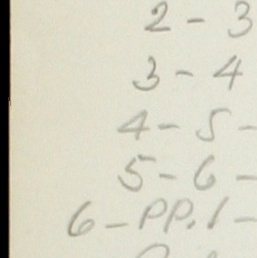 2 - 3
3 - 4
4 - 5 -
5 - 6 -
6 - PP. 1 -